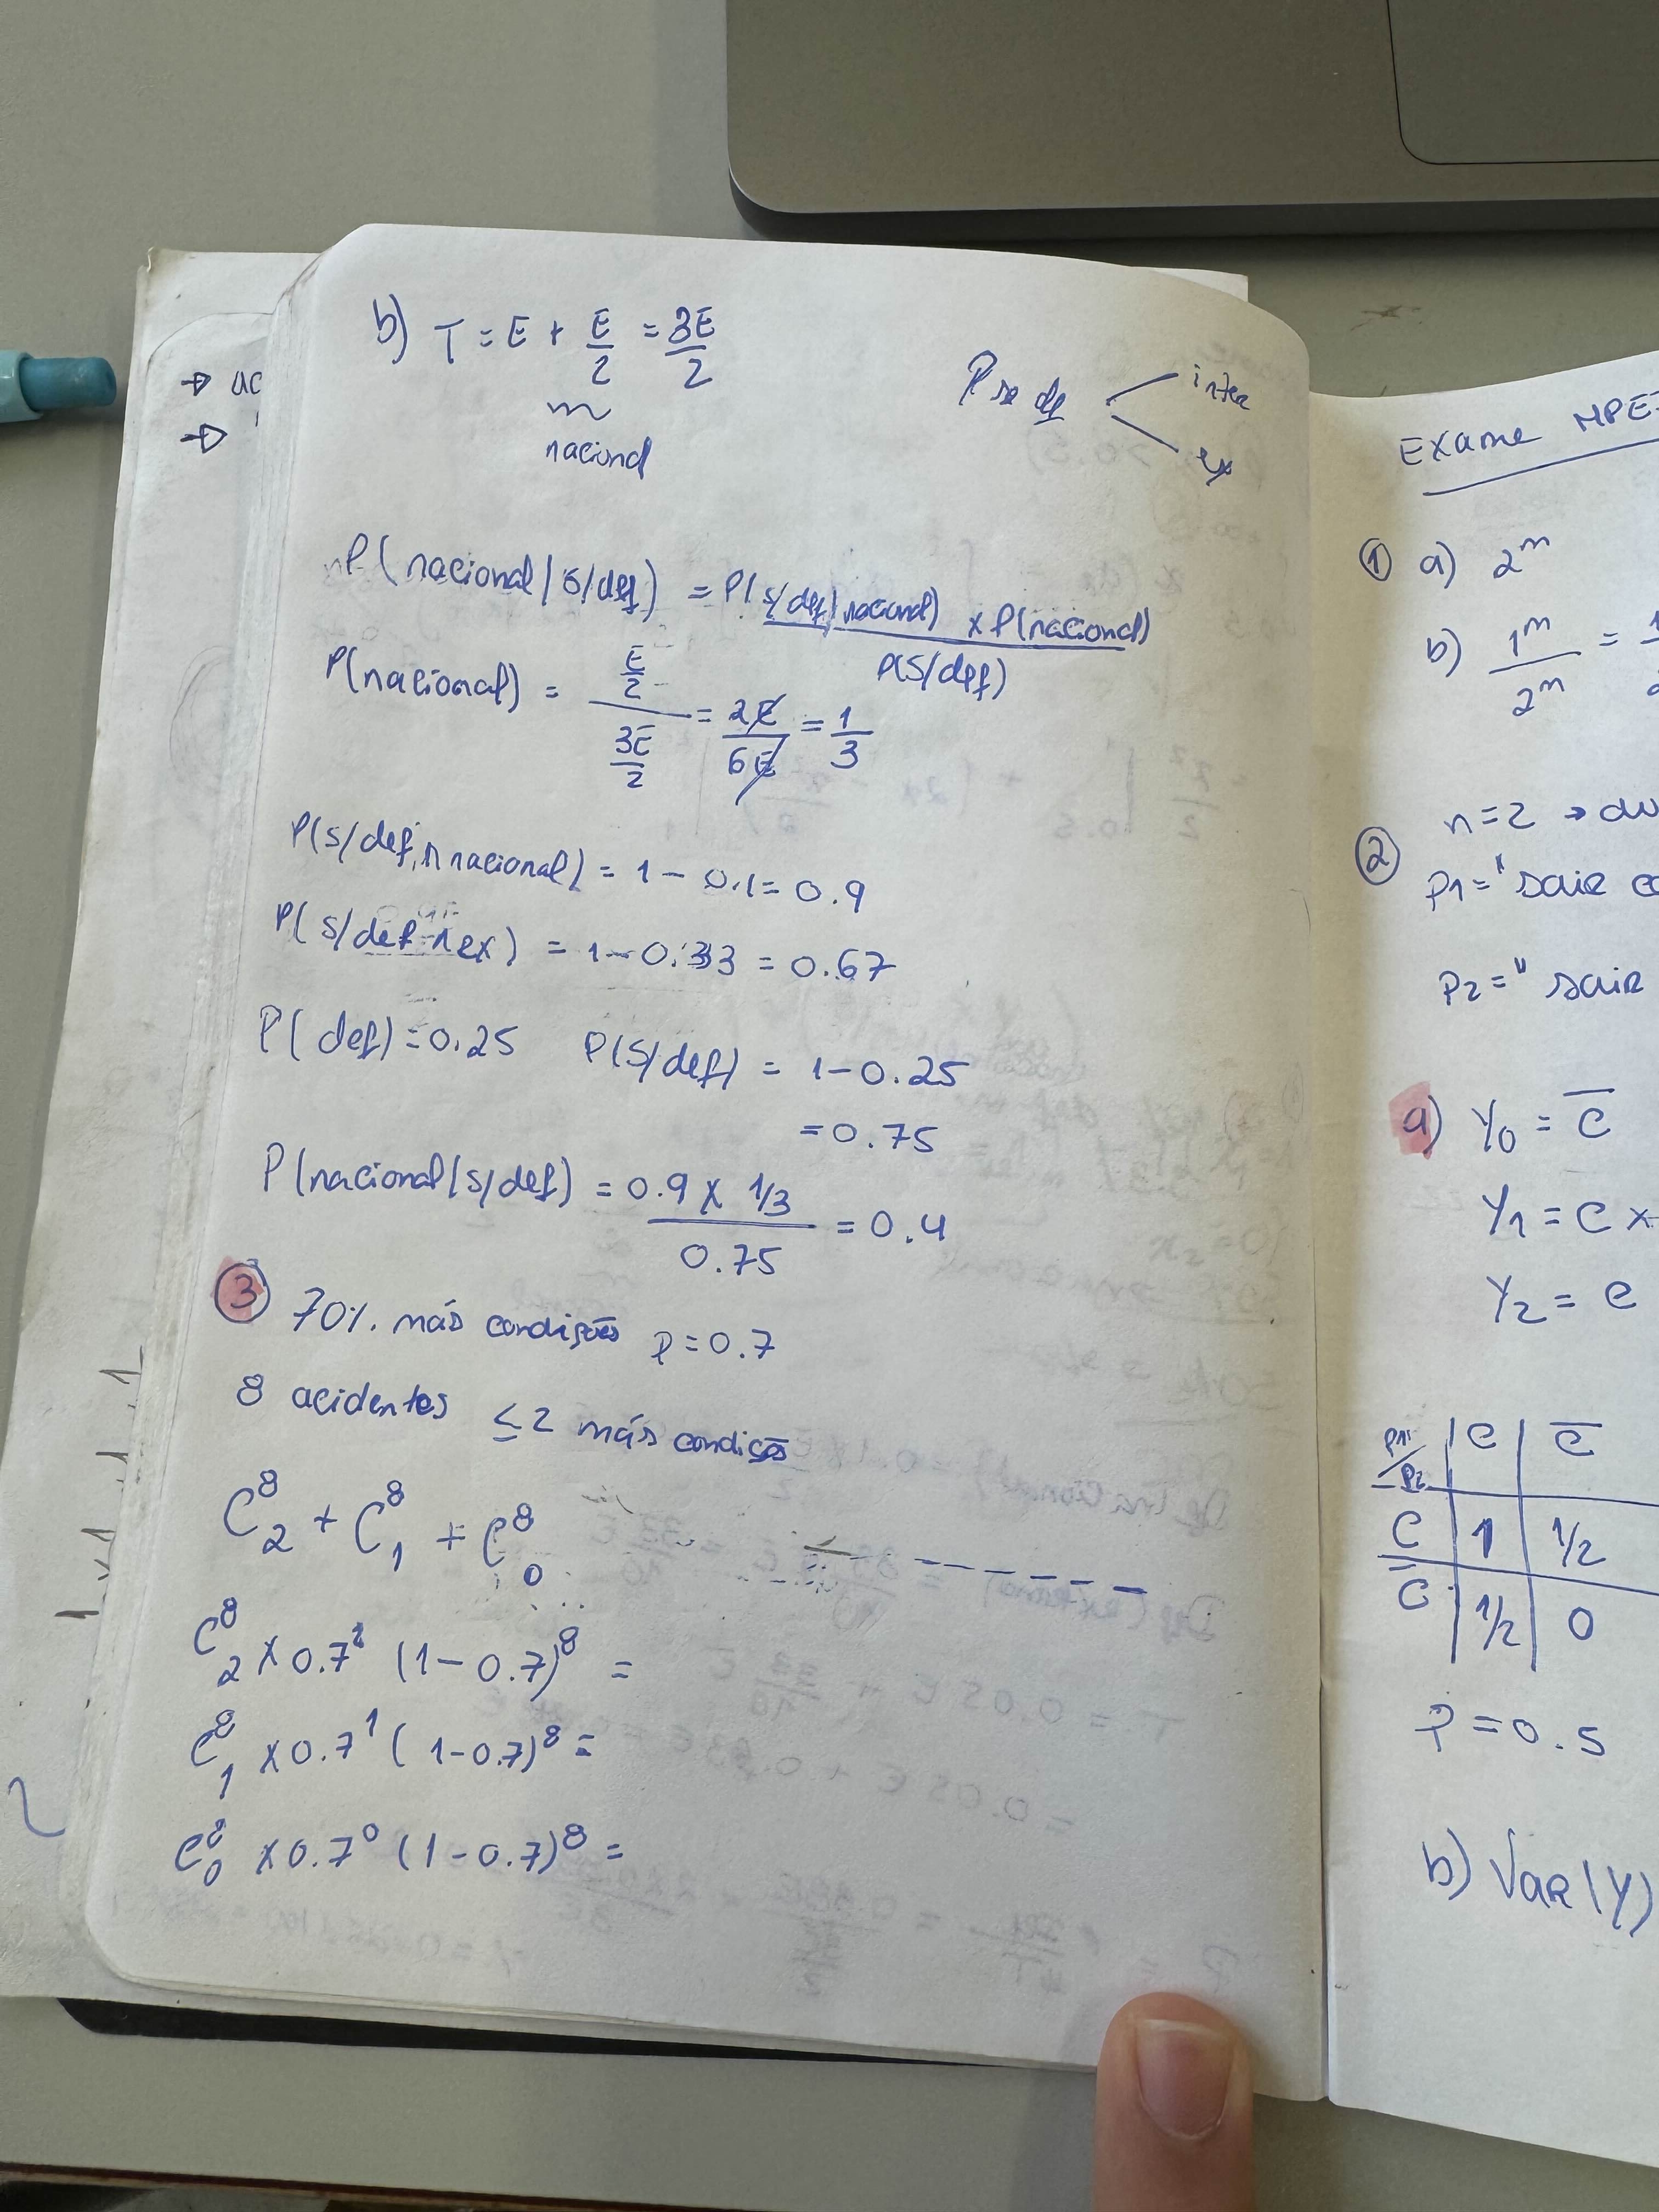 b) T = E + E/2 = 3E/2
nacional
inter
ex
P(nacional | s/def) = P(s/def | nacional) x P(nacional) / P(s/def)
P(nacional) = E/2 / 3E/2 = 2E/6E = 1/3
P(s/def ∩ nacional) = 1 - 0.1 = 0.9
P(s/def ∩ ex) = 1 - 0.33 = 0.67
P(def) = 0.25 P(s/def) = 1 - 0.25
= 0.75
P(nacional | s/def) = 0.9 x 1/3 / 0.75 = 0.4
③ 70% más condições p = 0.7
8 acidentes ≤ 2 más condições
C⁸₂ + C⁸₁ + C⁸₀
C⁸₂ x 0.7² (1 - 0.7)⁸ =
C⁸₁ x 0.7¹ (1 - 0.7)⁸ =
C⁸₀ x 0.7⁰ (1 - 0.7)⁸ =
→ ac
→
Exame MPE
① a) 2ᵐ
b) 1ᵐ/2ᵐ = 1
n = 2 →
② P1 = "sair c
P2 = "sair
a) Y₀ = C̅
Y₁ = C x
Y₂ = C
P1/P2 C C̅
C 1 1/2
C̅ 1/2 0
P = 0.5
b) Var(Y)